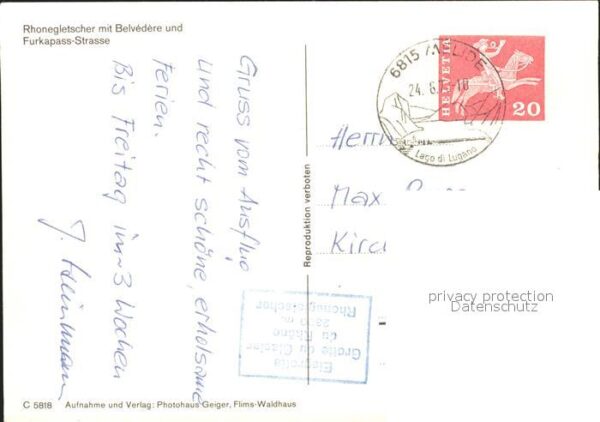 Rhonegletscher mit Belvédère und
Furkapass-Strasse
Gruss vom Ausflug
und recht schöne, erholsame
Ferien.
Bis Freitag in 3 Wochen
J.
Reproduktion verboten
6815 MELIDE
24. 6.
Lago di Lugano
HELVETIA
20
Herrn
Max
Eisgrotte
Grotte du Glacier
du Rhône
Rhonegletscher
privacy protection
Datenschutz
C 5818 Aufnahme und Verlag: Photohaus Geiger, Flims-Waldhaus